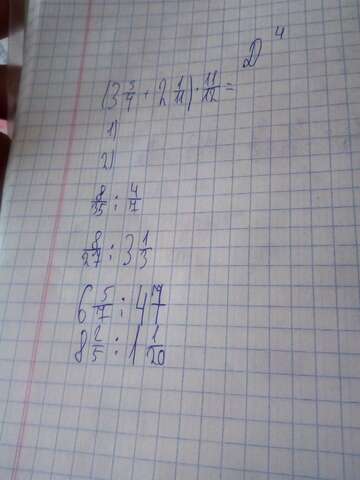 Д 4
(3 5/7 + 2 1/11) · 11/12 =
1)
2)
8/35 : 4/7
8/27 : 3 1/3
6 5/7 : 4 7/7
8 2/5 : 1 1/20